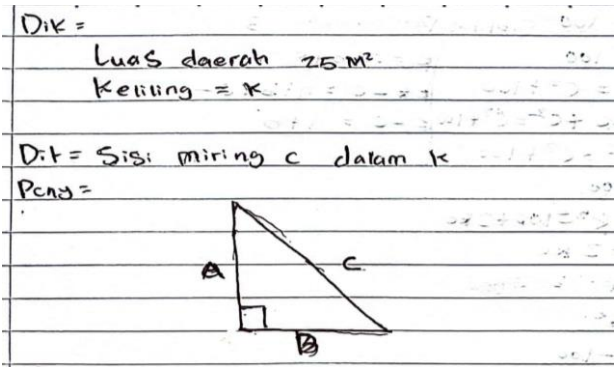 Dik =
Luas daerah 25 m²
Keliling = k
Dit = Sisi miring c dalam k
Peny =
A
C
B